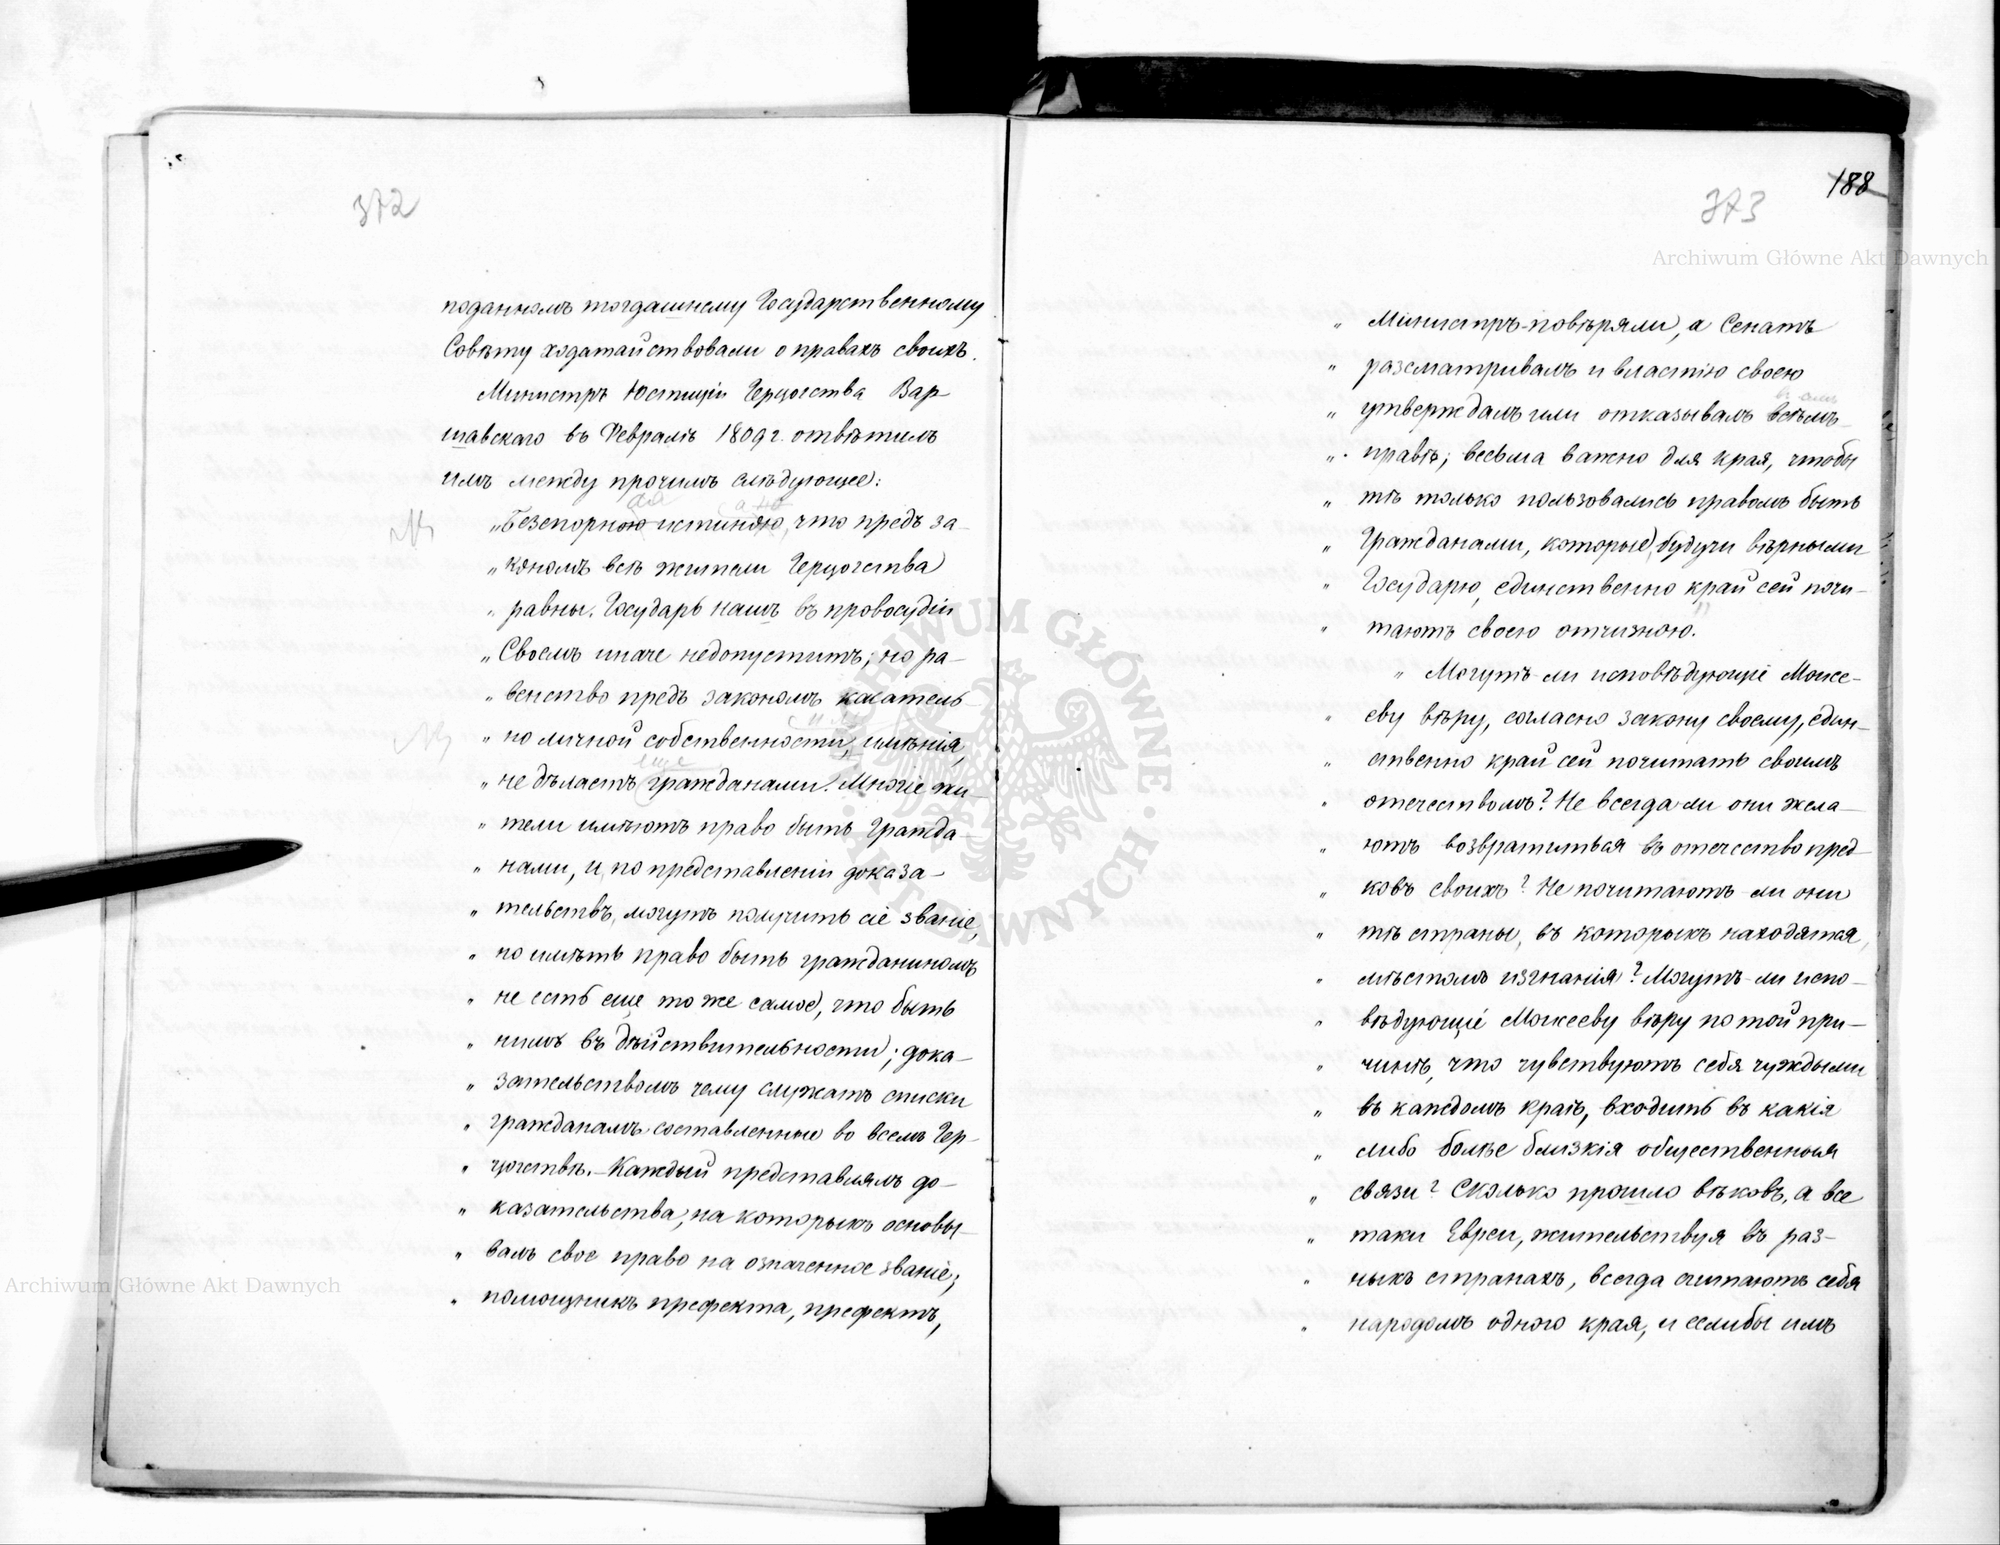 372
поданномъ тогдашнему Государственному
Совѣту ходатайствовали о правахъ своихъ.
Министръ Юстиціи Герцогства Вар-
шавскаго въ Февралѣ 1809 г. отвѣтилъ
имъ между прочимъ слѣдующее:
„Безспорною истиною, что предъ за-
„ кономъ всѣ жители Герцогства
„ равны. Государь нашъ въ провосудіи
„ Своемъ иначе недопуститъ; но ра-
„ венство предъ закономъ касатель-
„ но личной собственности, имѣнія,
„ не дѣлаетъ гражданами. Многіе жи-
„ тели имѣютъ право быть гражда-
„ нами, и по представленіи доказа-
„ тельствъ, могутъ получить сіе званіе,
„ но имѣть право быть гражданиномъ
„ не есть еще то же самое, что быть
„ нимъ въ дѣйствительности; дока-
„ зательствомъ чему служатъ списки
„ гражданамъ составленные во всемъ Гер-
„ цогствѣ.- Каждый представлялъ до-
„ казательства, на которыхъ основы-
„ валъ свое право на означенное званіе;
„ помощникъ префекта, префектъ,
188
373
„ Министръ повѣряли, а Сенатъ
„ разсматривалъ и властію своею
„ утверждалъ или отказывалъ въ семъ
„ правѣ; весьма важно для края, чтобы
„ тѣ только пользовались правомъ быть
„ Гражданами, которые, будучи вѣрными
„ Государю, единственно край сей почи-
„ таютъ своею отчизною.
„ Могутъ ли исповѣдующіе Моисе-
„ еву вѣру, согласно закону своему, един-
„ ственно край сей почитать своимъ
„ отечествомъ? Не всегда ли они жела-
„ ютъ возвратиться въ отечество пред-
„ ковъ своихъ? Не почитаютъ ли они
„ тѣ страны, въ которыхъ находятся,
„ мѣстомъ изгнанія? Могутъ ли испо-
„ вѣдующіе Моисееву вѣру по той при-
„ чинѣ, что чувствуютъ себя чуждыми
„ въ каждомъ краѣ, входить въ какія
„ либо болѣе близкія общественныя
„ связи? Сколько прошло вѣковъ, а все
„ таки Евреи, жительствуя въ раз-
„ ныхъ странахъ, всегда считаютъ себя
„ народомъ одного края, и еслибы имъ
Archiwum Główne Akt Dawnych
Archiwum Główne Akt Dawnych
ARCHIWUM GŁÓWNE AKT DAWNYCH